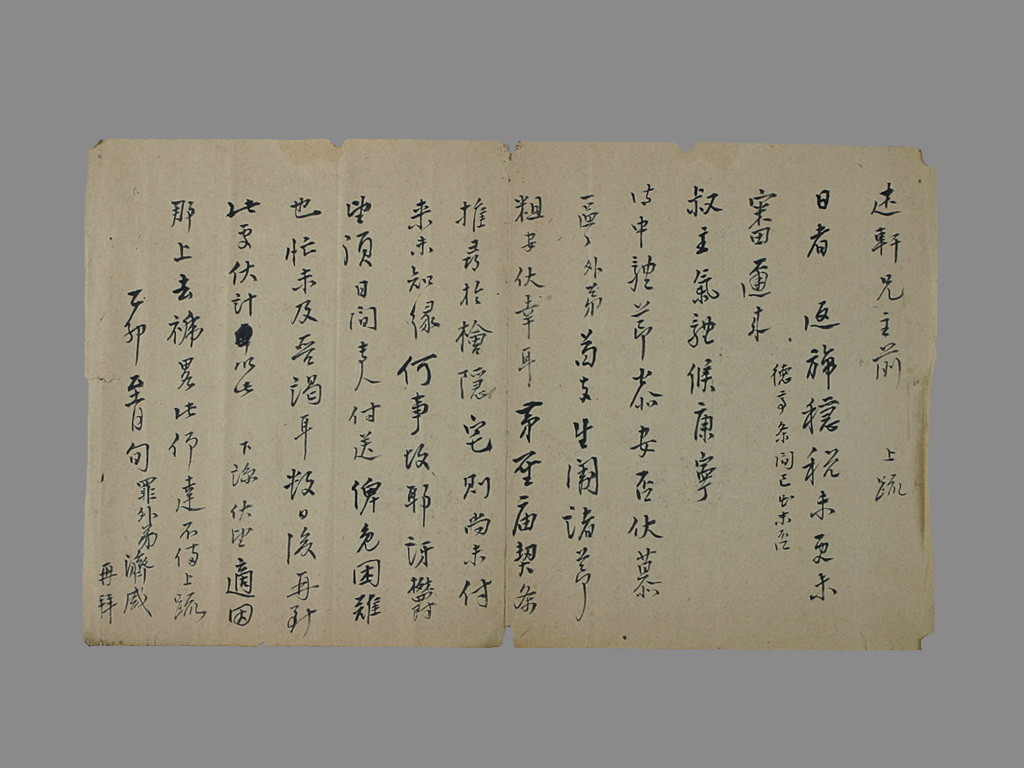 遠軒兄主前 上疏
日者 返旆穩稅未更未
審邇來
德方條間已出末否
叔主氣軆候康寧
侍中軆節恭安否伏慕
區〃外弟苟支生闍諸節
粗安伏幸耳第至庙契条
推尋於檜隱宅則尚未付
來未知緣何事故耶訝鬱
望須日間專人付送俾免困難
也忙未及吾謁耳數日後再到
此更伏計以此 下諒伏望適因
那上去褫畧此仰達不備上疏
乙卯至月旬 罪外弟 濟咸
再拜